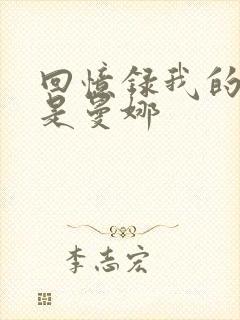 回憶録我的
是曼娜
李志宏